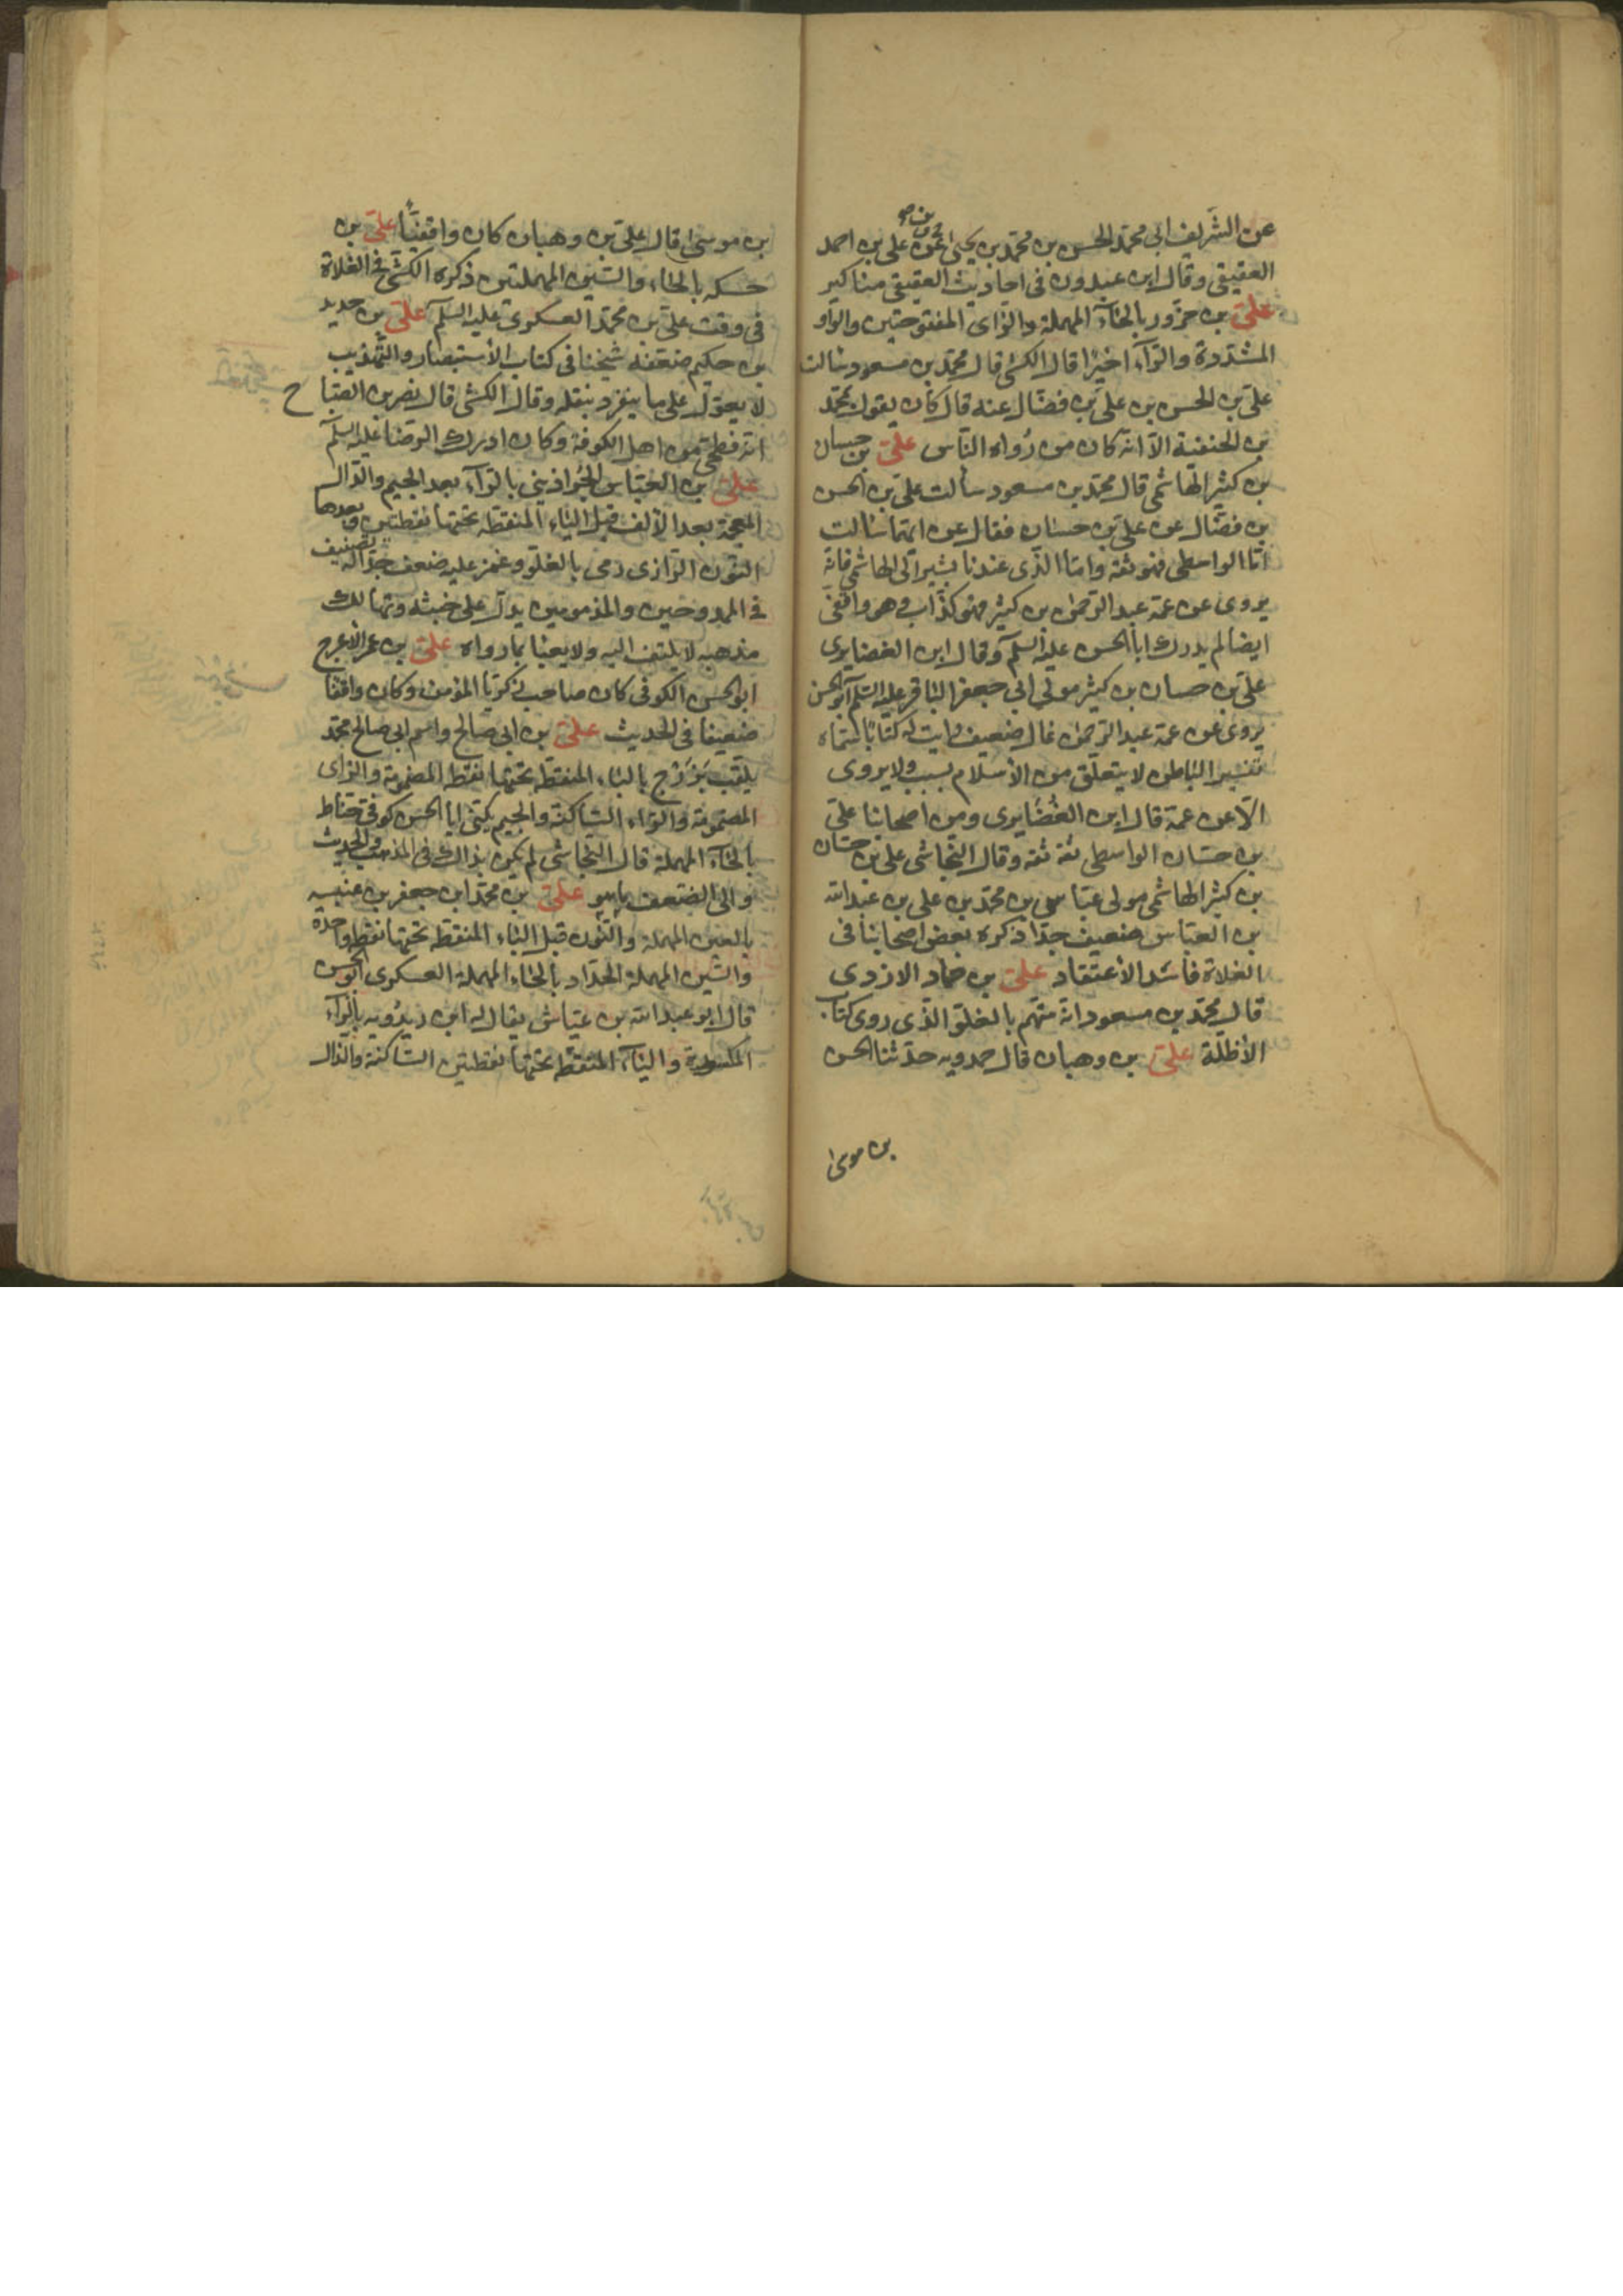 عن الشريف ابى محمد الحسن بن محمد بن يحيى عن على بن احمد
العقيقى وقال ابن عبدون فى احاديث العقيقى مناكير
علىّ بن حزور بالحاء المهملة والزاى المفتوحتين والواو
المشددة والرآء اخيرًا قال الكشى قال محمد بن مسعود سالت
علىّ بن الحسن بن علىّ بن فضّال عنه قال كان يقول بمحمّد
بن الحنفية الّا انّه كان من رُواه النّاس علىّ بن حسان
بن كثير الهاشمى قال محمّد بن مسعود سألت علىّ بن الحسن
بن فضّال عن علىّ بن حسان فقال عن ايّهما سالت
امّا الواسطى فهو ثقة وامّا الذّى عندنا يشير الى الهاشمى فانّه
يروى عن عمّه عبد الرّحمن بن كثير فهو كذّاب وهو واقفىّ
ايضا لم يدرك ابا الحسن عليه السلم وقال ابن الغضايرى
علىّ بن حسان بن كثير مولى ابى جعفر الباقر عليه السّلم ابو الحسن
يروى عن عمّه عبد الرّحمن غال ضعيف رايت له كتابًا سمّاه
تفسير الباطن لا يتعلّق من الأسلام بسبب ولا يروى
الّا عن عمّه قال ابن الغُضايرى ومن اصحابنا علىّ
بن حسّان الواسطى ثقة ثقة وقال النّجاشى علىّ بن حسّان
بن كثير الهاشمى مولى عباس بن محمّد بن على بن عبد الله
بن العبّاس ضعيف جدّا ذكره بعض اصحابنا فى
الغلاة فاسد الأعتقاد علىّ بن حماد الازدى
قال محمّد بن مسعود انّه متّهم بالغلوّ الذّى روى كتاب
الأظلّة علىّ بن وهبان قال حمدويه حدّثنا الحسن
بن موسى
بن موسى قال علىّ بن وهبان كان واقفيًّا علىّ بن
حسكه بالحاء والسّين المهملتين ذكره الكشّى فى الغلاة
فى وقت علىّ بن محمّد العسكرى عليه السلم علىّ بن حديد
بن حكيم ضعّفه شيخنا فى كتاب الأستبصار والتّهذيب
لا يعوّل على ما ينفرد بنقله وقال الكشى قال نصر بن الصّباح
انّه فطحىّ من اهل الكوفة وكان ادرك الرّضا عليه السلم
علىّ بن العبّاس الجُراذينى بالرّاء بعد الجيم والذّال
المعجمة بعد الألف قبل الياء المنقطة تحتها نقطتين وبعدها
النّون الرّازى رمى بالغلوّ وغمز عليه ضعف جدّا له تصنيف
فى الممدوحين والمذمومين يدلّ على خبثه وتهالك
مذهبه لا يلتفت اليه ولا يعبا بما رواه علىّ بن عمر الاعرج
ابو الحسن الكوفى كان صاحب زكريّا المؤمن وكان واقفا
ضعيفا فى الحديث علىّ بن ابى صالح واسم ابى صالح محمّد
يلقّب بَزرْج بالباء المنقطة تحتها نقطه المضمومة والزاى
المضمومة والرّاء السّاكنة والجيم يكنّى ابا الحسن كوفىّ حنّاط
بالحآء المهملة قال النّجاشى لم يكن بذاك فى المذهب والحديث
والى الضّعف ما هو علىّ بن محمّد ابن جعفر بن عنبسه
بالعين المهملة والنّون قبل الباء المنقطه تحتها نقطه واحدة
والسّين المهملة الحدّاد بالحاء المهملة العسكرى ابو الحسن
قال ابو عبد الله بن عيّاش يقال له ابن ريدُويه بالرّاء
المكسورة واليآء المنقطه تحتها نقطتين السّاكنة والذال